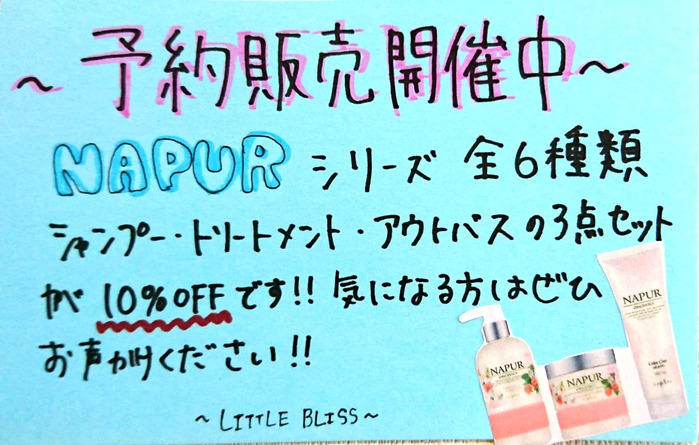 ～予約販売開催中～
NAPUR シリーズ 全6種類
シャンプー・トリートメント・アウトバスの3点セット
が 10%OFFです!! 気になる方はぜひ
お声かけください!!
～LITTLE BLISS～
NAPUR
NAPUR
NAPUR